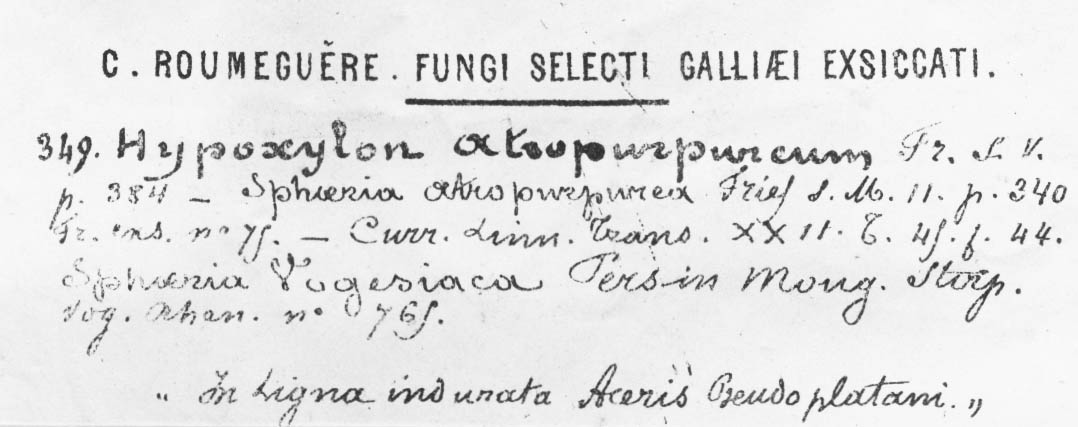 C. ROUMEGUĚRE. FUNGI SELECTI GALLIÆI EXSICCATI.
349. Hypoxylon atropurpureum Fr. S. V.
p. 384 — Sphæria atropurpurea Fries S. M. 11. p. 340
Fr. exs. nº 75. — Curr. Linn. Trans. XX11. T. 45. f. 44.
Sphæria Vogesiaca Pers in Moug. Stirp.
Vog. Rhen. nº 765.
„ In Ligna indurata Aceris Pseudoplatani. „